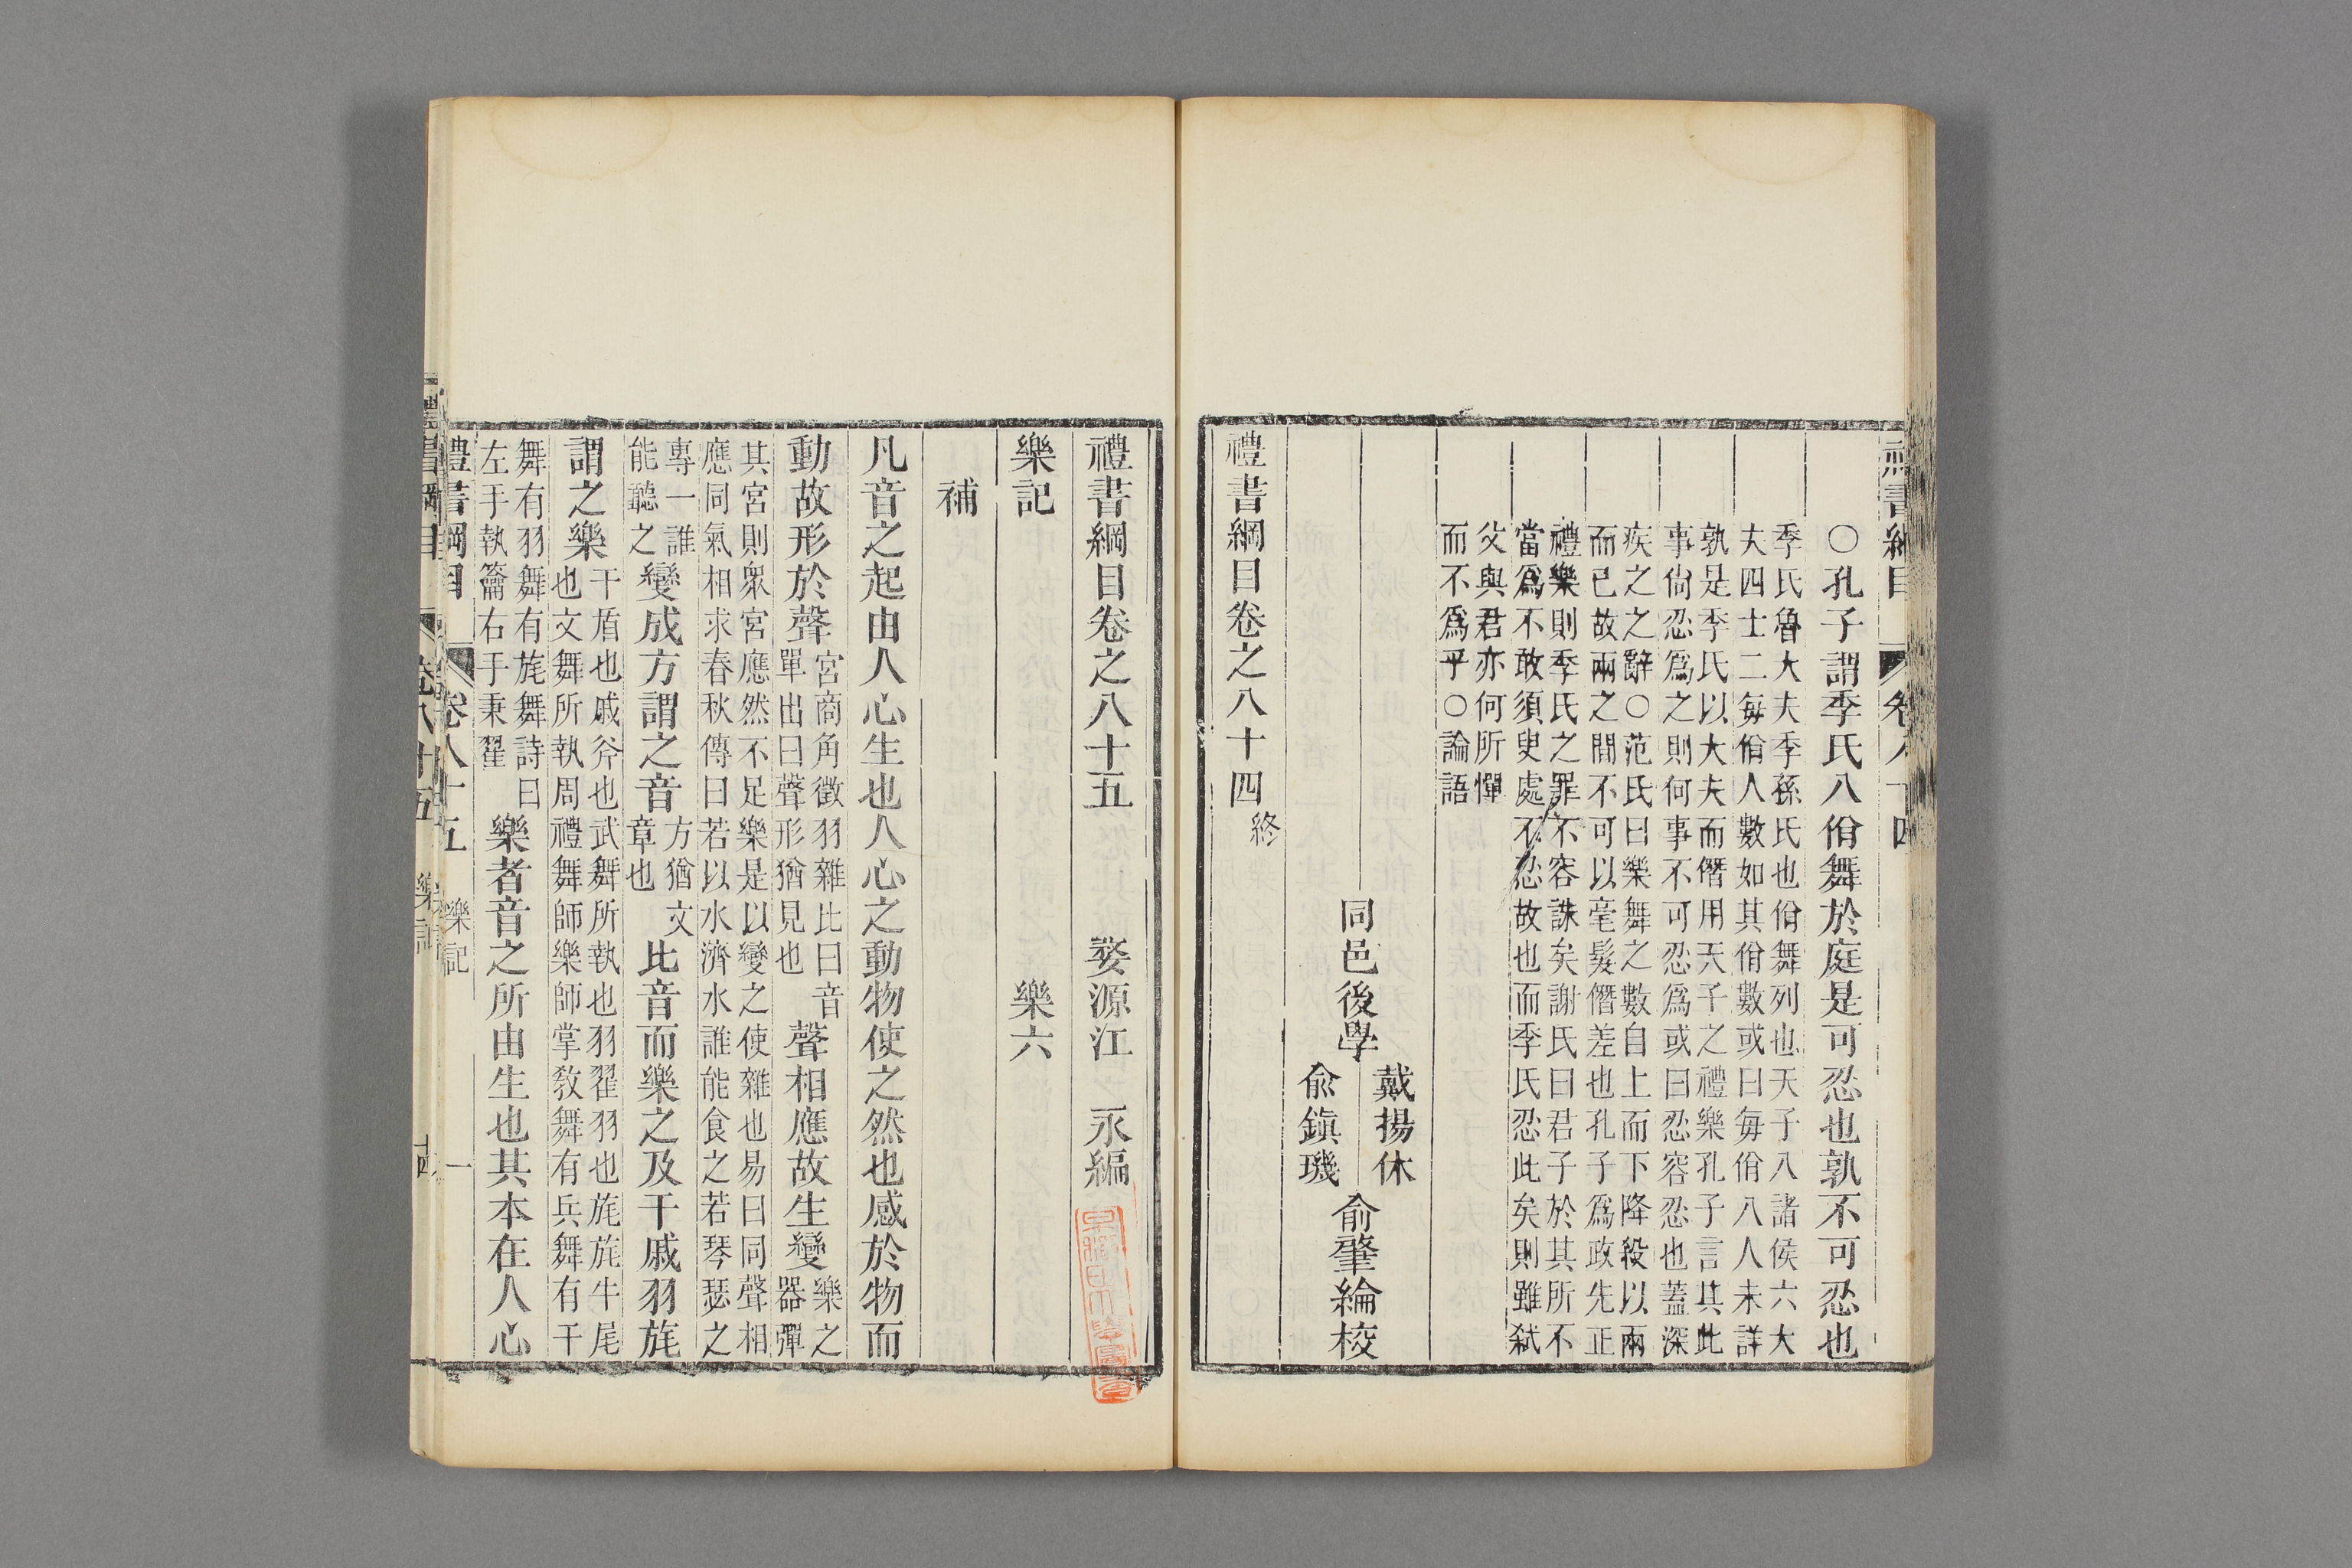 禮書綱目 卷八十四
〇孔子謂季氏八佾舞於庭是可忍也孰不可忍也
季氏魯大夫季孫氏也佾舞列也天子八諸侯六大
夫四士二每佾人數如其佾數或曰每佾八人未詳
孰是季氏以大夫而僭用天子之禮樂孔子言其此
事尚忍爲之則何事不可忍爲或曰忍容忍也蓋深
疾之之辭〇范氏曰樂舞之數自上而下降殺以兩
而已故兩之間不可以毫髮僭差也孔子爲政先正
禮樂則季氏之罪不容誅矣謝氏曰君子於其所不
當爲不敢須臾處不忍故也而季氏忍此矣則雖弑
父與君亦何所憚
而不爲乎〇論語
戴揚休
同邑後學 俞肇綸校
俞鎭璣
禮書綱目卷之八十四終
禮書綱目卷之八十五 婺源江 永編
樂記 樂六
補
凡音之起由人心生也人心之動物使之然也感於物而
動故形於聲宮商角徵羽雜比曰音單出曰聲形猶見也聲相應故生變樂之器彈
其宮則衆宮應然不足樂是以變之使雜也易曰同聲相
應同氣相求春秋傳曰若以水濟水誰能食之若琴瑟之
專一誰能聽之變成方謂之音方猶文章也比音而樂之及干戚羽旄
謂之樂干盾也戚斧也武舞所執也羽翟羽也旄旄牛尾也文舞所執周禮舞師樂師掌敎舞有兵舞有干
舞有羽舞有旄舞詩曰左手執籥右手秉翟樂者音之所由生也其本在人心
禮書綱目 卷八十五 樂記 一
禮書綱目 卷八十五 樂記 十四